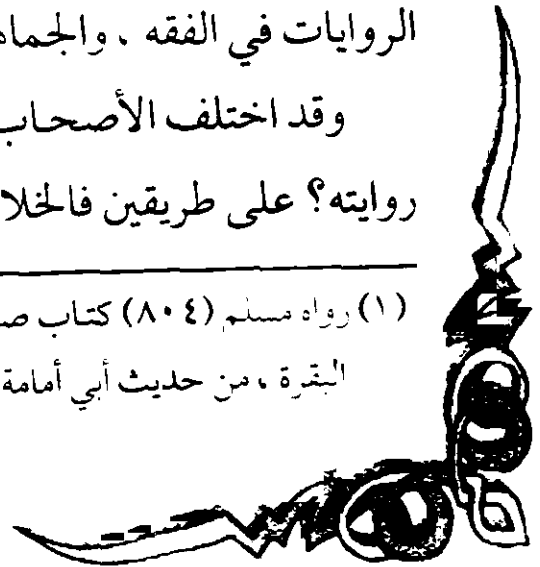 الروايات في الفقه ، والجما
وقد اختلف الأصحاب
روايته؟ على طريقين فالخلا
(١) رواه مسلم (٨٠٤) كتاب ص
البقرة ، من حديث أبي أمامة